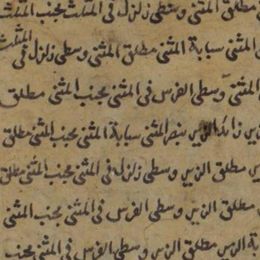 مطلق المثنى وسطى زلزل فى المثلث بجنب المثلث
المثنى سبابة المثنى مطلق المثنى وسطى زلزل فى المثلث
المثنى وسطى الفرس فى المثنى بجنب المثنى مطلق
زائد الزير بنصر المثنى سبابة المثنى بجنب المثنى مطلق
مطلق الزير وسطى زلزل فى المثنى بجنب المثنى مطلق
مطلق الزير وسطى الفرس فى المثنى بجنب المثنى
الزير مطلق الزير وسطى الفرس فى المثنى بجنب